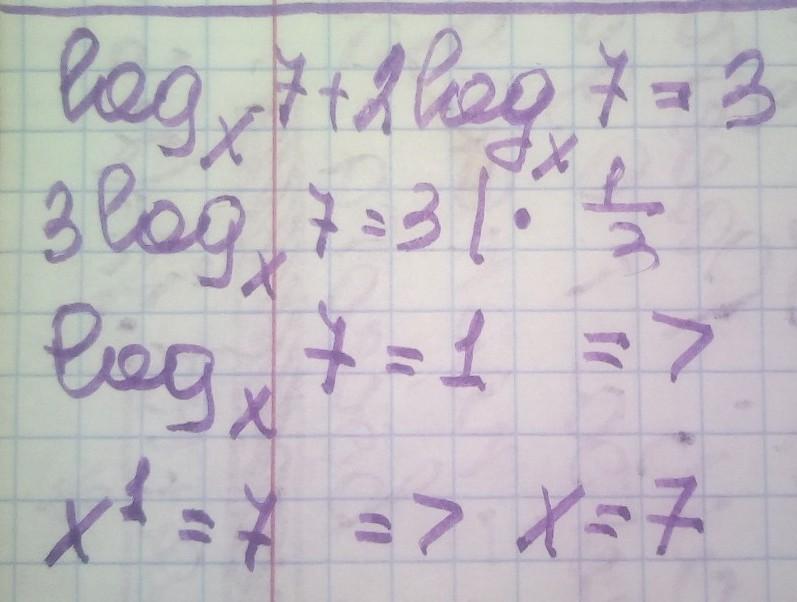 logₓ 7 + 2 logₓ 7 = 3
3 logₓ 7 = 3 | · 1/3
logₓ 7 = 1 =>
x¹ = 7 => x = 7